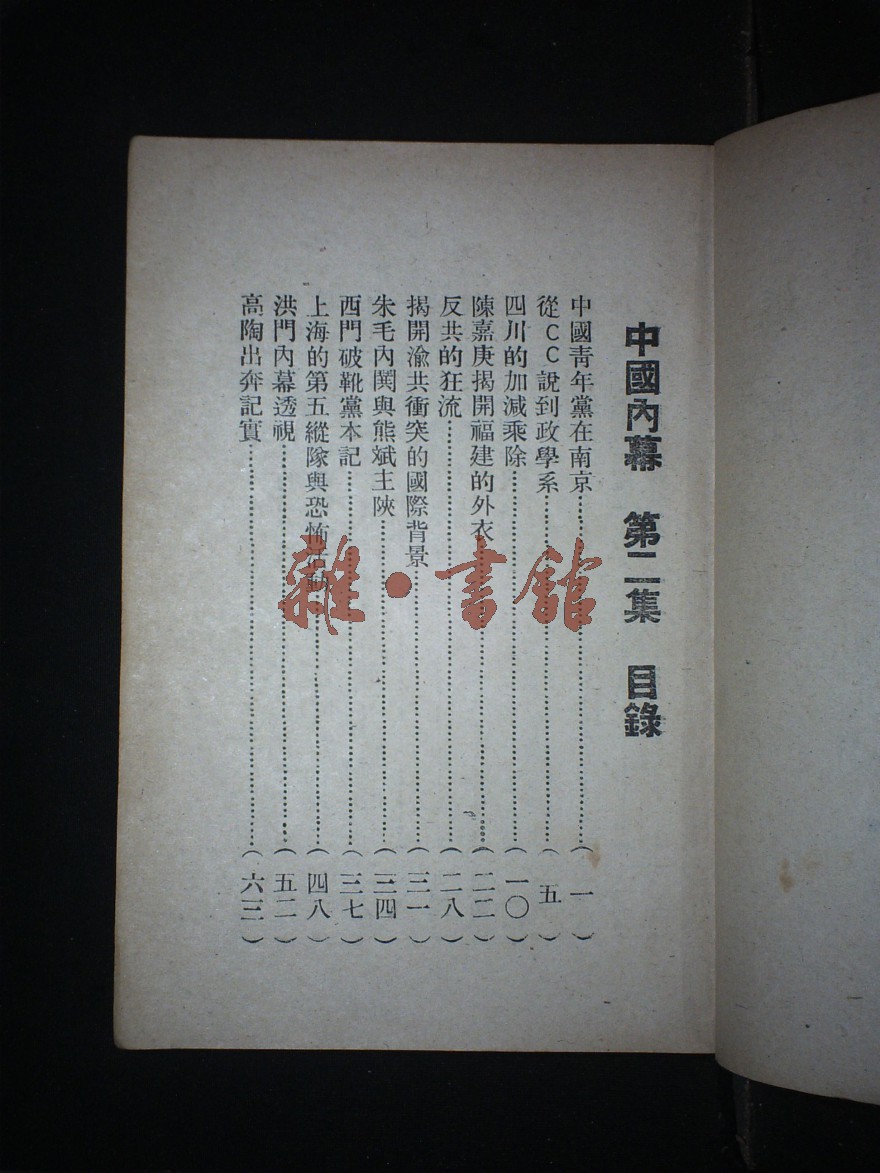 中國內幕　第二集　目錄
中國青年黨在南京……(一)
從CC說到政學系……(五)
四川的加減乘除……(一〇)
陳嘉庚揭開福建的外衣……(二二)
反共的狂流……(二八)
揭開渝共衝突的國際背景……(三一)
朱毛內鬨與熊斌主陝……(三四)
西門破靴黨本記……(三七)
上海的第五縱隊與恐怖活動……(四八)
洪門內幕透視……(五二)
高陶出奔記實……(六三)
雜·書館